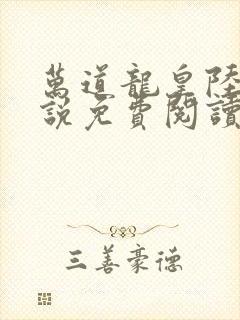 萬道龍皇陸
説免費閱讀
三善豪德